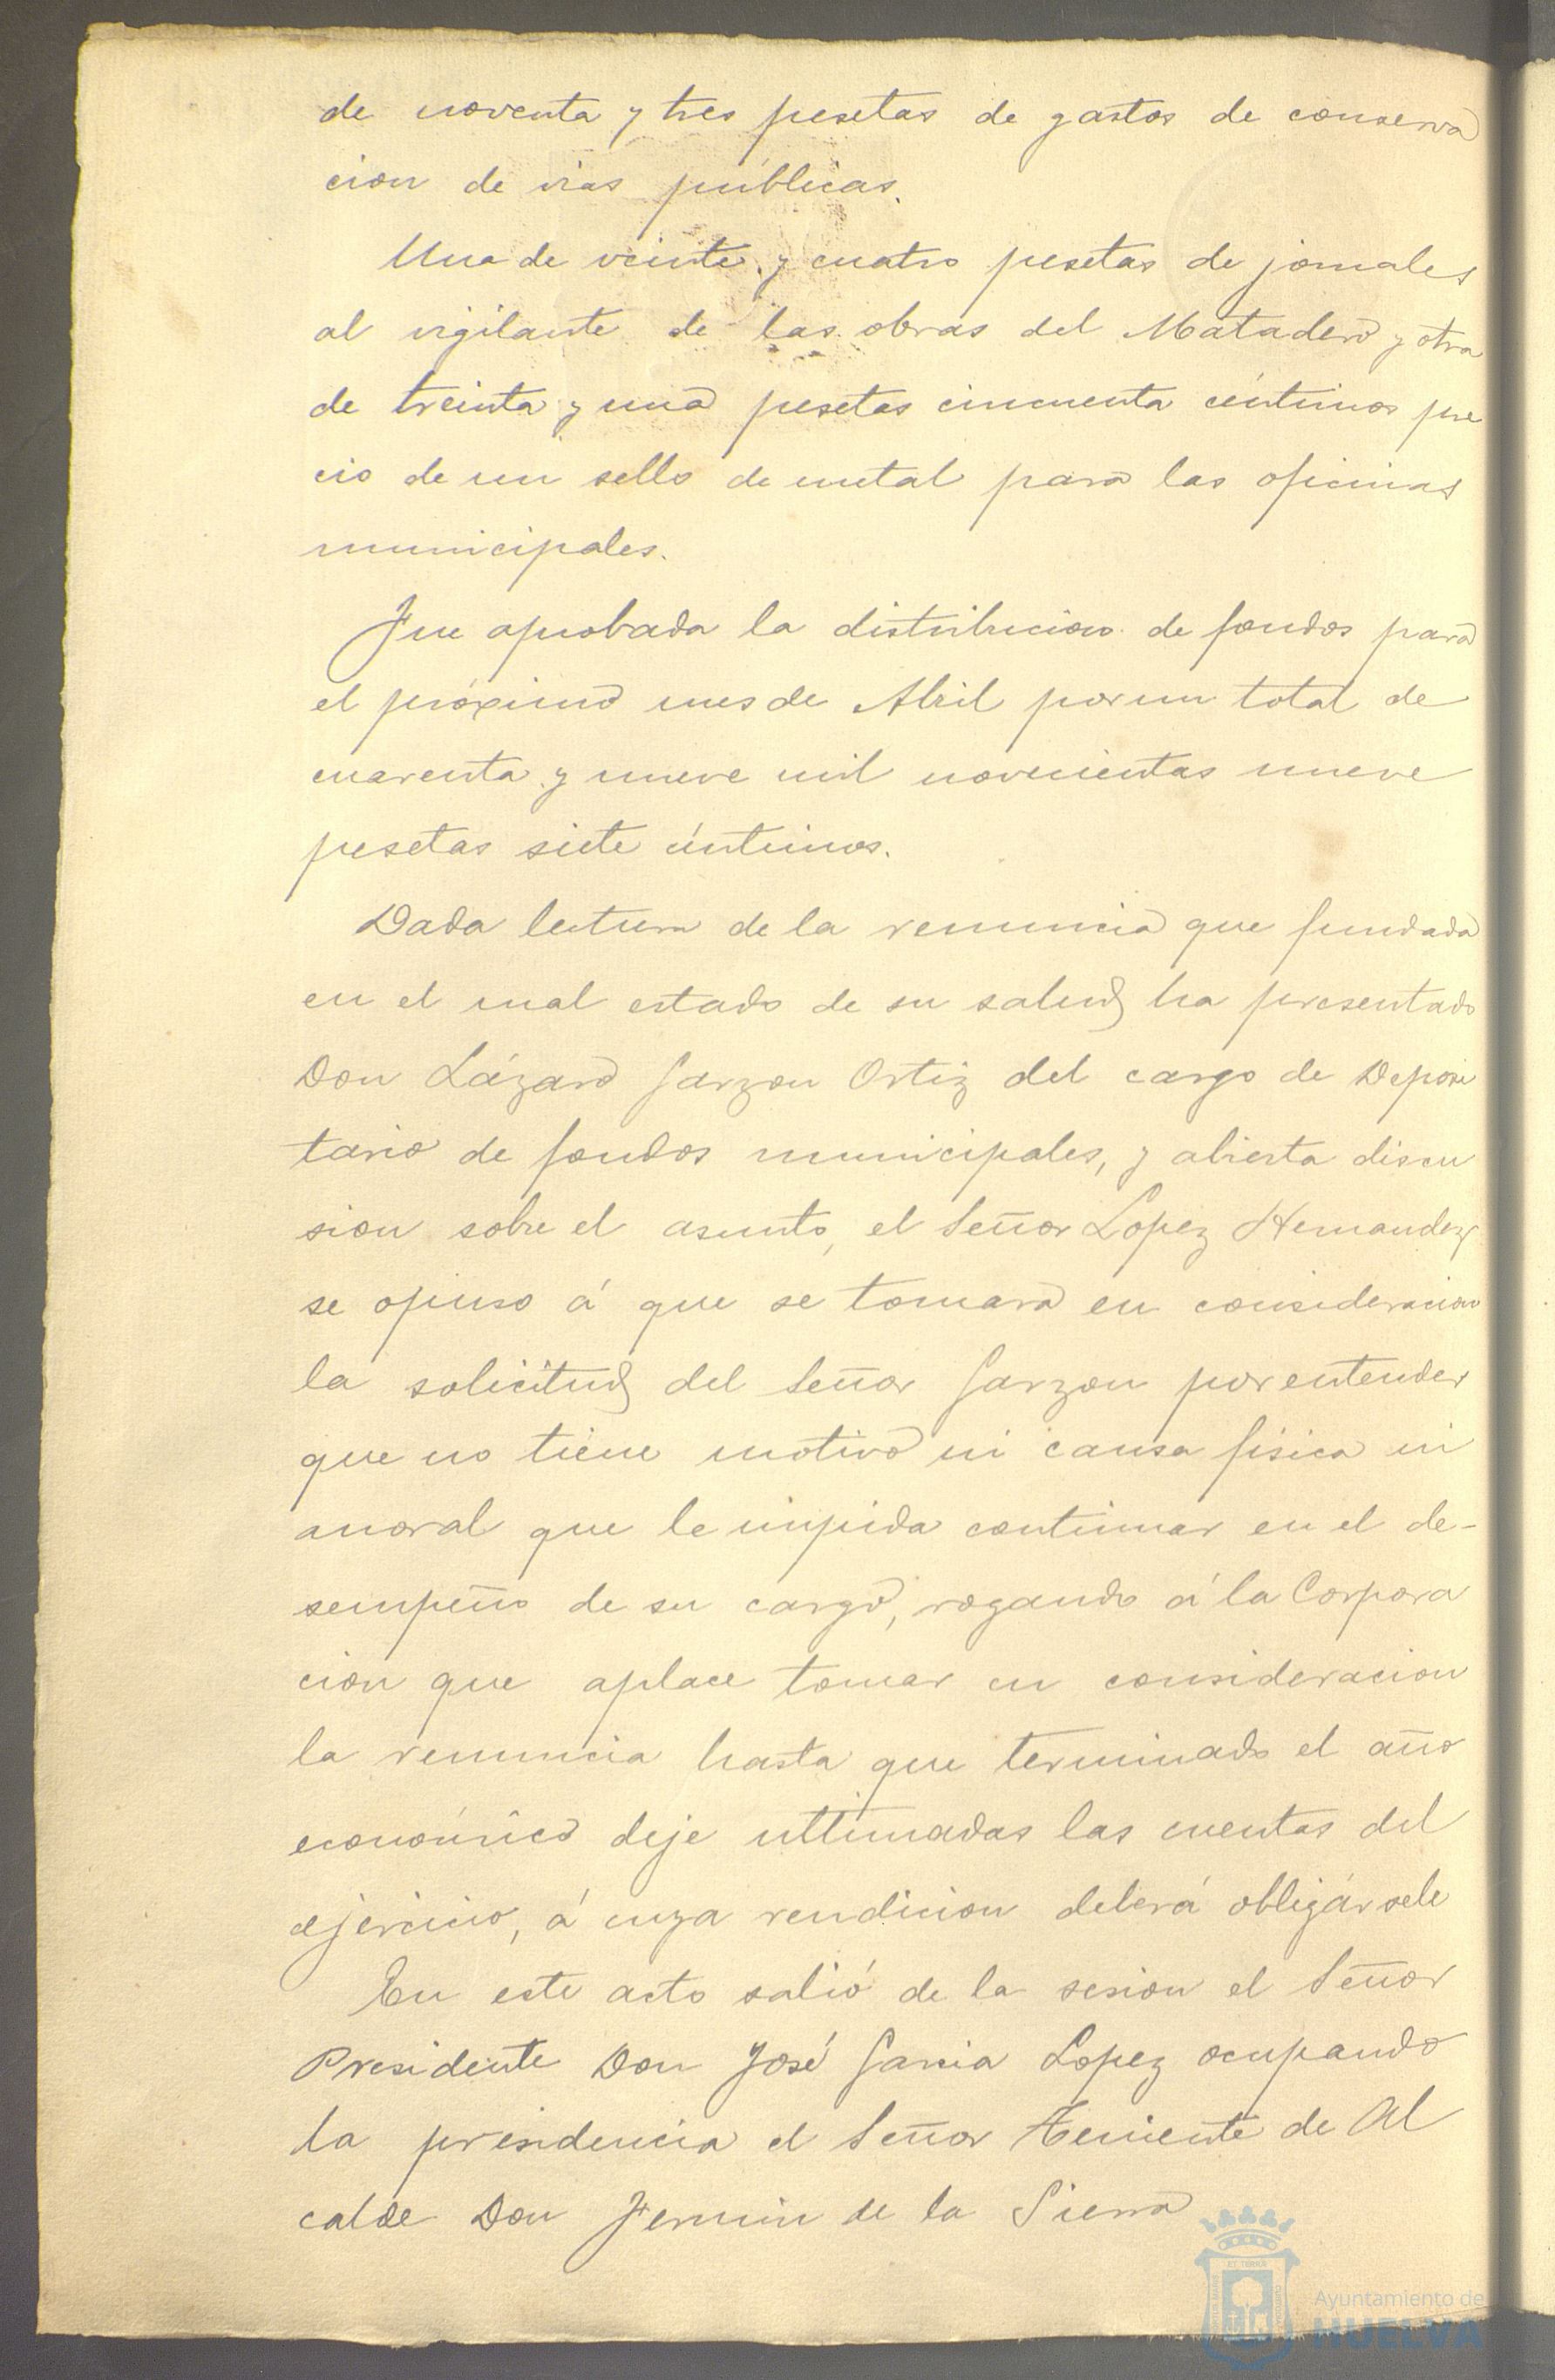 de noventa y tres pesetas de gastos de conserva
cion de vias públicas.
Una de veinte y cuatro pesetas de jornales
al vigilante de las obras del Matadero y otra
de treinta y una pesetas cincuenta céntimos pre
cio de un sello de metal para las oficinas
municipales.
Fue aprobada la distribucion de fondos para
el próximo mes de Abril por un total de
cuarenta y nueve mil novecientas nueve
pesetas siete céntimos.
Dada lectura de la renuncia que fundada
en el mal estado de su salud ha presentado
Don Lázaro Garzon Ortiz del cargo de Deposi
tario de fondos municipales, y abierta discu
sion sobre el asunto, el Señor Lopez Hernandez
se opuso á que se tomara en consideracion
la solicitud del Señor Garzon por entender
que no tiene motivo ni causa fisica ni
moral que le impida continuar en el de-
sempeño de su cargo, rogando á la Corpora
cion que aplace tomar en consideracion
la renuncia hasta que terminado el año
económico deje ultimadas las cuentas del
ejercicio, á cuya rendicion deberá obligársele
En este acto salió de la sesion el Señor
Presidente Don José Garcia Lopez ocupando
la presidencia el Señor Teniente de Al
calde Don Fermin de la Sierra
Ayuntamiento de
HUELVA